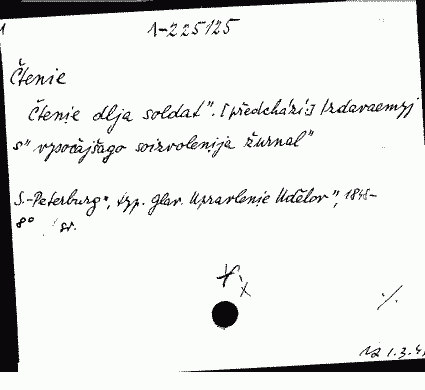 1-225125
Čtenie
Čtenie dlja soldat". [předchází:] Izdavaemyj
s" vysočajšago soizvolenija žurnal"
S.-Peterburg", typ. Glav. Upravlenie Udělov", 1848-
8° sv.